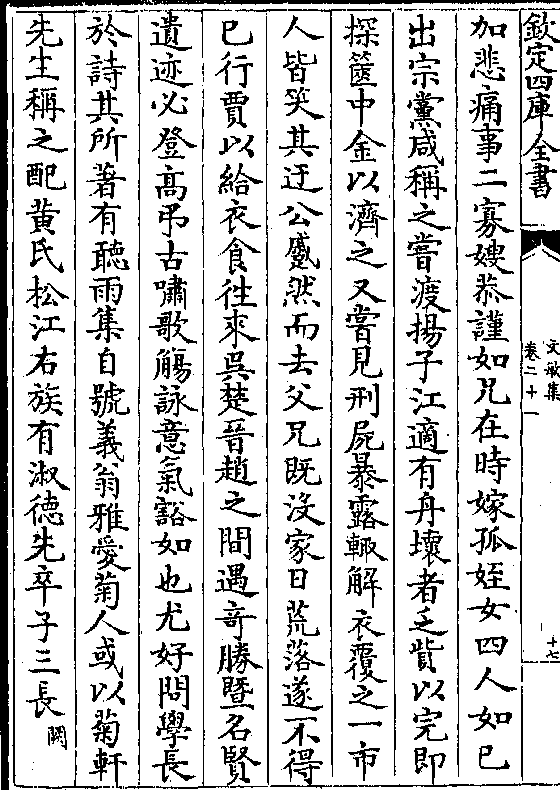 欽定四庫全書
文敏集
卷二十一
十七
加悲痛事二寡嫂恭謹如兄在時嫁孤姪女四人如已
出宗黨咸稱之嘗渡揚子江適有舟壞者乏貲以完即
探篋中金以濟之又嘗見刑屍暴露輙解衣覆之一市
人皆笑其迂公蹙然而去父兄既没家日荒落遂不得
已行賈以給衣食徃來吳楚晉趙之間遇竒勝暨名賢
遺迹必登髙弔古嘯歌觴詠意氣豁如也尤好問學長
於詩其所著有聽雨集自號義翁雅愛菊人或以菊軒
先生稱之配黄氏松江右族有淑徳先卒子三長闕